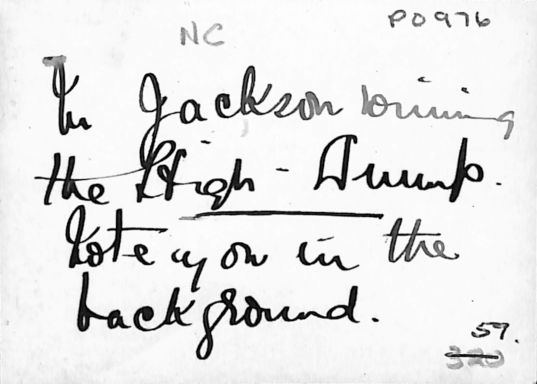 NC
P0976
In Jackson winning
the High - Jump.
Note you in the
background.
59.
320